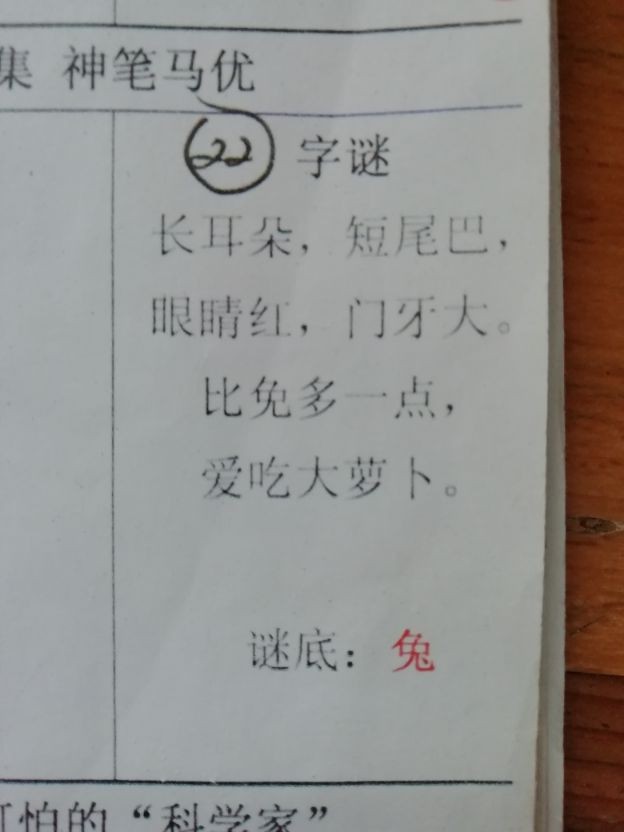 集 神笔马优
22 字谜
长耳朵，短尾巴，
眼睛红，门牙大。
比免多一点，
爱吃大萝卜。
谜底：兔
怕的“科学家”